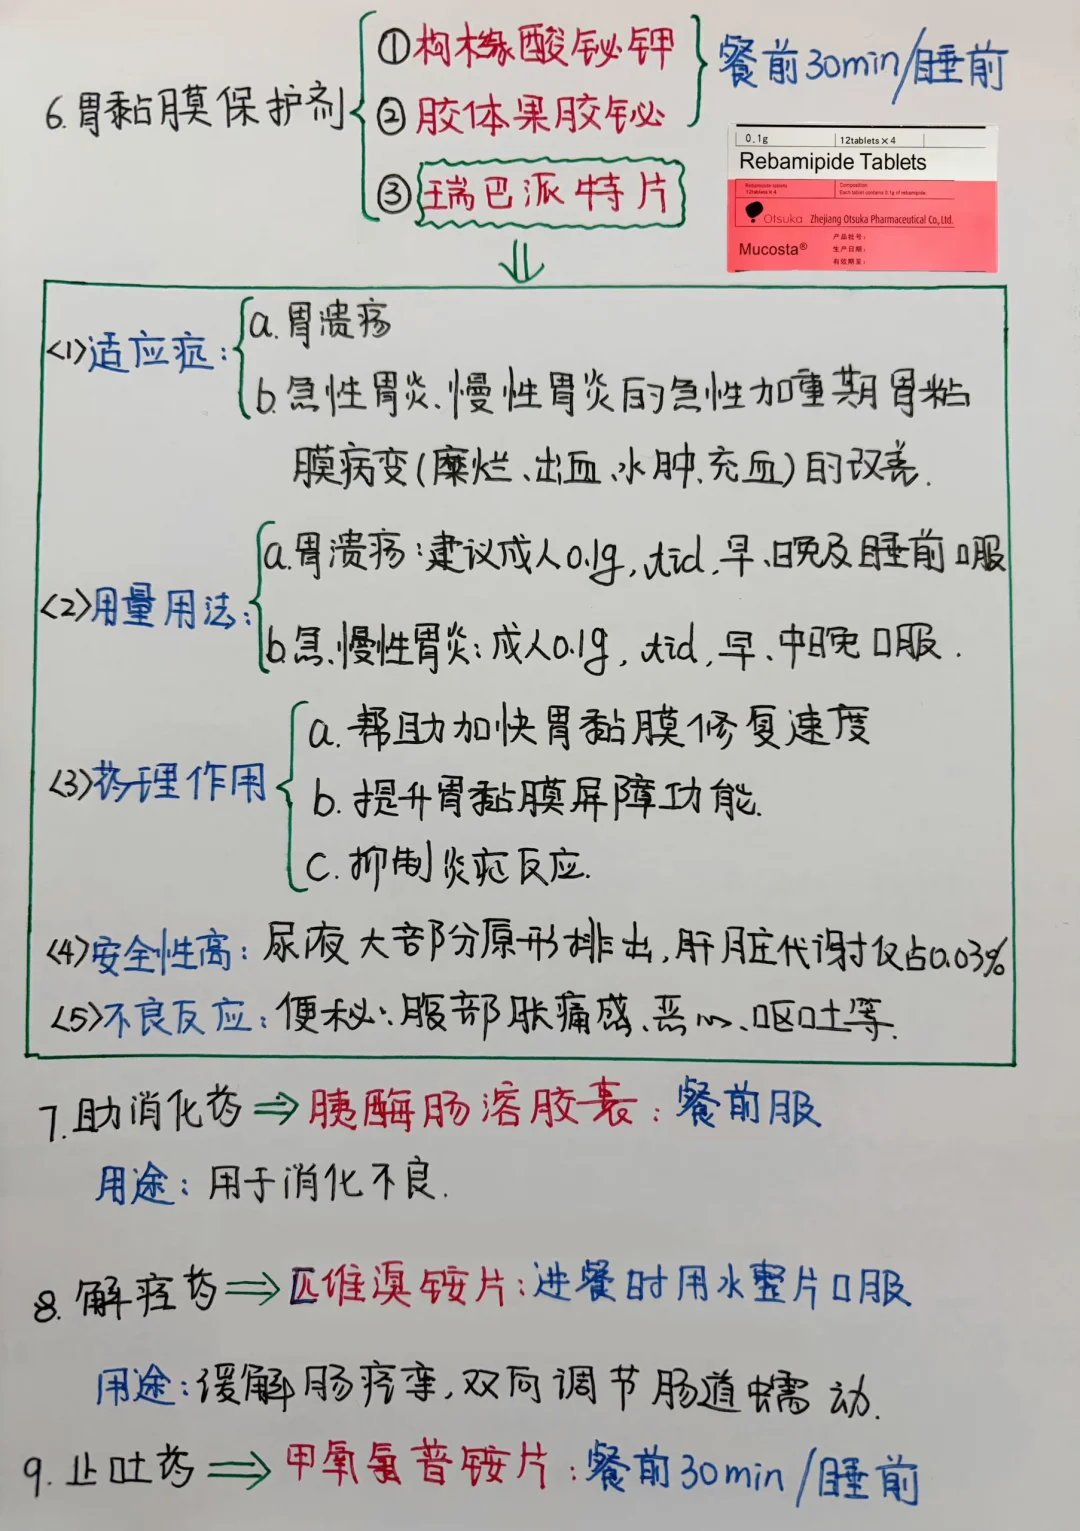 6.胃黏膜保护剂
①枸橼酸铋钾
②胶体果胶铋
餐前30min/睡前
③瑞巴派特片
0.1g 12tablets×4
Rebamipide Tablets
Rebamipide tablets
12tablets×4
Composition
Each tablet contains 0.1g of rebamipide
Otsuka Zhejiang Otsuka Pharmaceutical Co,Ltd.
Mucosta®
产品批号:
生产日期:
有效期至:
<1>适应症:
a.胃溃疡
b.急性胃炎、慢性胃炎的急性加重期胃粘
膜病变(糜烂、出血、水肿、充血)的改善.
<2>用量用法:
a.胃溃疡:建议成人0.1g,tid,早、晚及睡前口服
b.急、慢性胃炎:成人0.1g,tid,早、中晚口服.
<3>药理作用
a.帮助加快胃黏膜修复速度
b.提升胃黏膜屏障功能.
c.抑制炎症反应.
<4>安全性高:尿液大部分原形排出,肝脏代谢仅占0.03%
<5>不良反应:便秘、腹部胀痛感、恶心、呕吐等.
7.助消化药⇒胰酶肠溶胶囊:餐前服
用途:用于消化不良.
8.解痉药⇒匹维溴铵片:进餐时用水整片口服
用途:缓解肠痉挛,双向调节肠道蠕动.
9.止吐药⇒甲氧氯普铵片:餐前30min/睡前